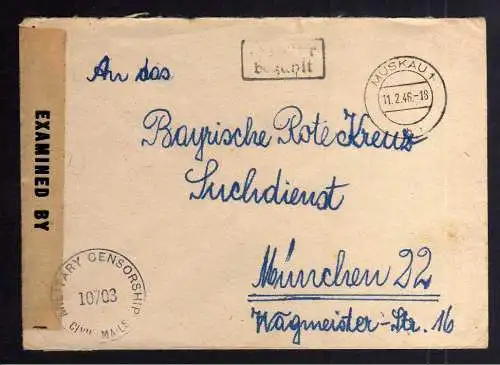 An das
bezahlt
MUSKAU 1
11.2.46.-18
Bayrische Rote Kreuz
Suchdienst
München 22
Wagmeister-Str. 16
EXAMINED BY
MILITARY CENSORSHIP
10703
CIVIL MAILS